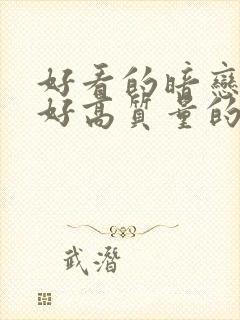 好看的暗戀
好高質量的
武潛